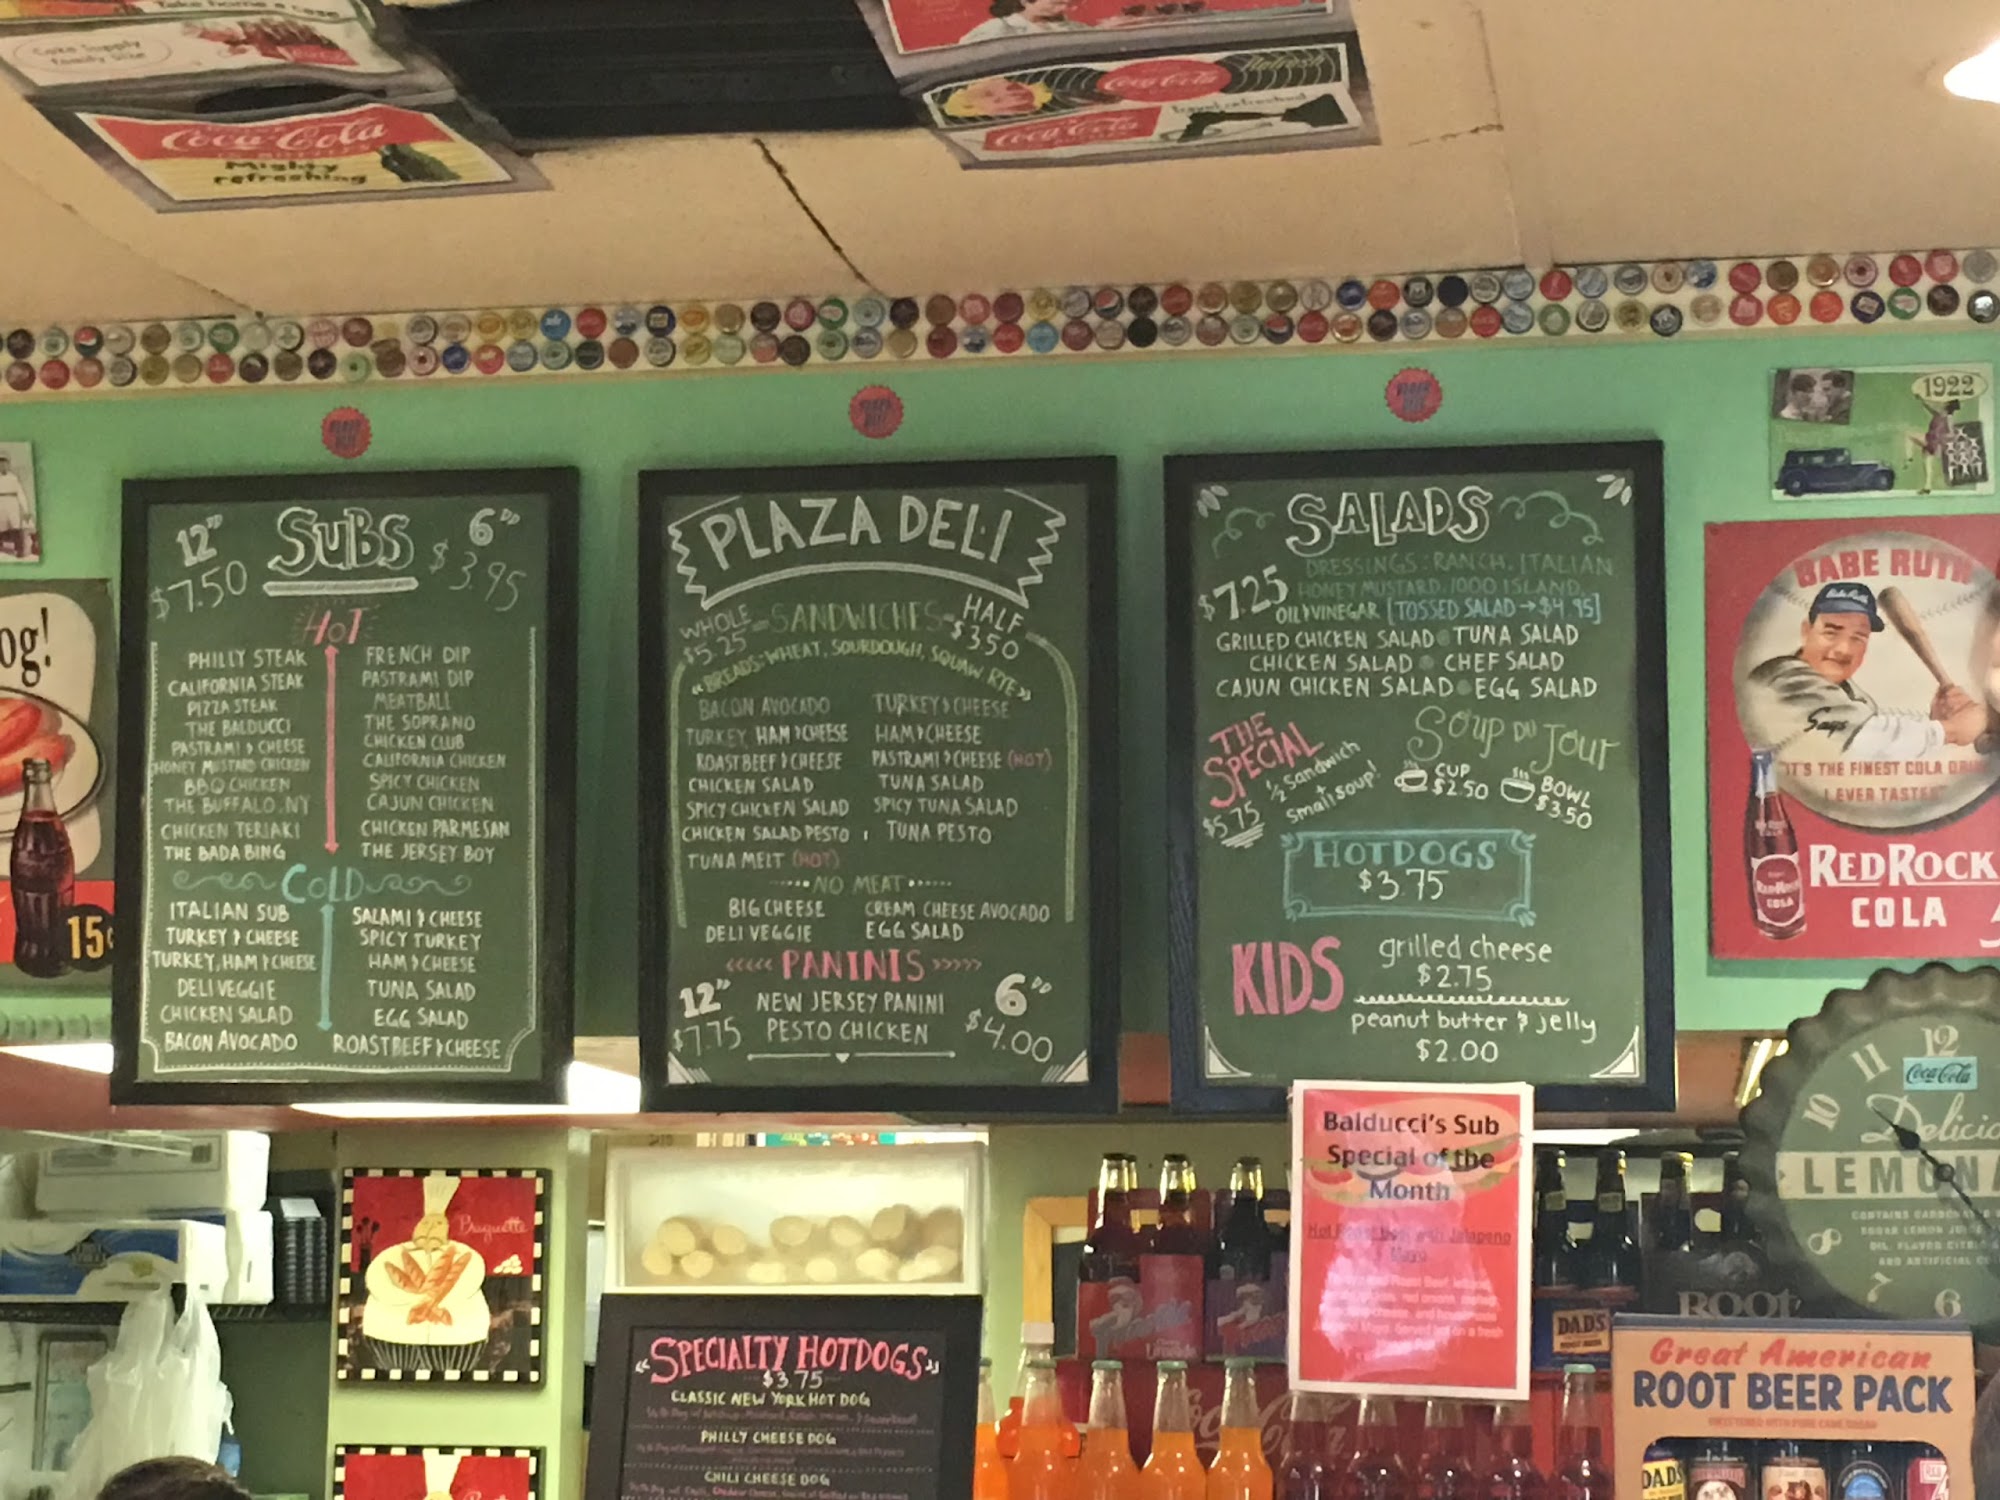 Take home a case
Coke Supply
family size
Coca-Cola
Mighty
refreshing
Coca-Cola
Refresh
Coca-Cola
Travel refreshed
1922
og!
15¢
12"
SUBS
6"
$7.50
$3.95
HOT
PHILLY STEAK
CALIFORNIA STEAK
PIZZA STEAK
THE BALDUCCI
PASTRAMI & CHEESE
HONEY MUSTARD CHICKEN
BBQ CHICKEN
THE BUFFALO, NY
CHICKEN TERIAKI
THE BADA BING
FRENCH DIP
PASTRAMI DIP
MEATBALL
THE SOPRANO
CHICKEN CLUB
CALIFORNIA CHICKEN
SPICY CHICKEN
CAJUN CHICKEN
CHICKEN PARMESAN
THE JERSEY BOY
COLD
ITALIAN SUB
TURKEY & CHEESE
TURKEY, HAM & CHEESE
DELI VEGGIE
CHICKEN SALAD
BACON AVOCADO
SALAMI & CHEESE
SPICY TURKEY
HAM & CHEESE
TUNA SALAD
EGG SALAD
ROAST BEEF & CHEESE
PLAZA DELI
WHOLE
$5.25
SANDWICHES
HALF
$3.50
"BREADS: WHEAT, SOURDOUGH, SQUAW RYE"
BACON AVOCADO
TURKEY, HAM & CHEESE
ROAST BEEF & CHEESE
CHICKEN SALAD
SPICY CHICKEN SALAD
CHICKEN SALAD PESTO
TUNA MELT (HOT)
TURKEY & CHEESE
HAM & CHEESE
PASTRAMI & CHEESE (HOT)
TUNA SALAD
SPICY TUNA SALAD
TUNA PESTO
NO MEAT
BIG CHEESE
DELI VEGGIE
CREAM CHEESE AVOCADO
EGG SALAD
<<<<< PANINIS >>>>>
12"
$7.75
NEW JERSEY PANINI
PESTO CHICKEN
6"
$4.00
SALADS
$7.25
DRESSINGS: RANCH, ITALIAN
HONEY MUSTARD, 1000 ISLAND,
OIL & VINEGAR [TOSSED SALAD → $4.95]
GRILLED CHICKEN SALAD • TUNA SALAD
CHICKEN SALAD • CHEF SALAD
CAJUN CHICKEN SALAD • EGG SALAD
THE SPECIAL
$5.75
1/2 Sandwich
+
small soup!
Soup Du Jour
CUP
$2.50
BOWL
$3.50
HOTDOGS
$3.75
KIDS
grilled cheese
$2.75
peanut butter & jelly
$2.00
BABE RUTH
Says
"IT'S THE FINEST COLA
I EVER TASTED
RED ROCK
COLA
RED ROCK
COLA
12
11
10
8
7
6
Coca-Cola
Delicio
LEMONA
Balducci's Sub
Special of the
Month
Hot Roast Beef with Jalapeno
Mayo
Baguette
"SPECIALTY HOTDOGS"
$3.75
CLASSIC NEW YORK HOT DOG
PHILLY CHEESE DOG
CHILI CHEESE DOG
DAD'S
ROOT
Great American
ROOT BEER PACK
SWEETENED WITH PURE CANE SUGAR
DAD'S